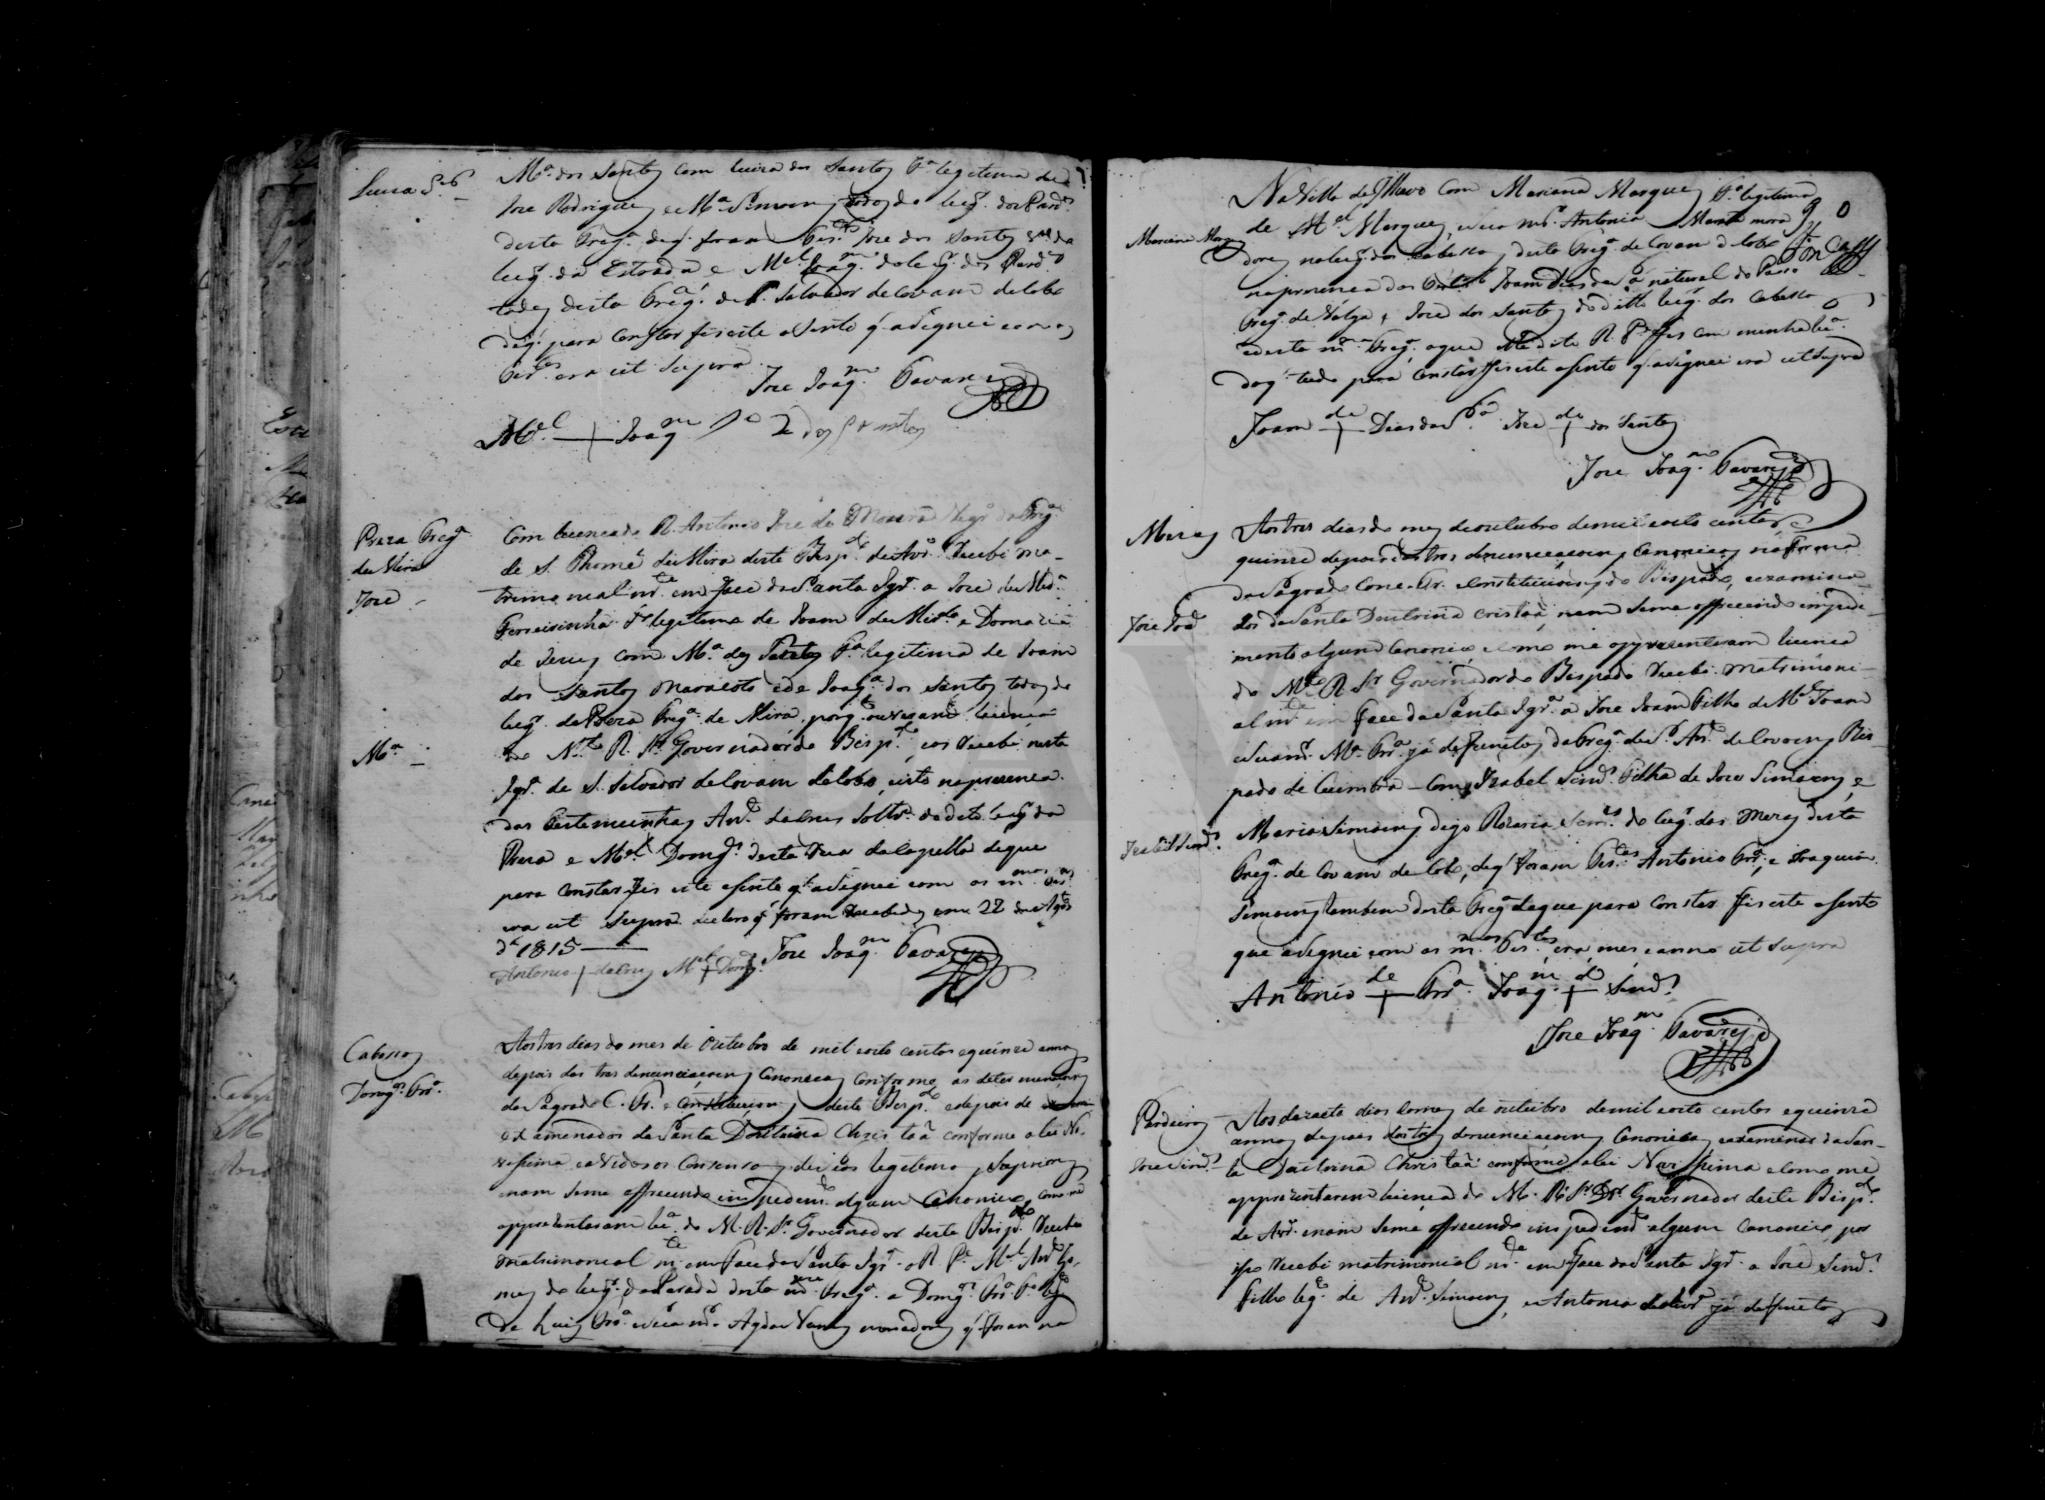 Luiza
Mª. dos Santos com Luiza dos Santos Fª legitima de
Joze Rodrigues e Mª Simoens todos do lugʳ. dos Pardrº
desta Fregª. de q̃. foram Tesᵗᵃˢ Joze dos Santos do
lugʳ. da Estrada e Mᵉˡ Joaqᵐ do lugʳ dos Pardrº
todos desta Fregª. de S. Salvador de Covam do lobo
de q̃. para constar fis este asento q̃. asignei com as
Tesᵗᵃˢ era ut supra
Joze Joaqᵐ Tavares
Mᵉˡ + Joaqᵐ dos Santos
Preza Fregª
de Mira
Joze
Com licença do R. Antonio Joze de Moura da Fregª
de S. Thomé de Mira deste Bispᵈᵒ de Avrº. Recebi ma-
trimonialmᵗᵉ em face da Santa Igrª. a Joze de Mirª
Ferreirinha Fº legitimo de Joam de Mirª e Domazia
de Jesus com Mª dos Santos Fª legitima de Joam
dos Santos Maracoto e de Joaqª. dos Santos todos do
lugʳ. da Preza Fregª de Mira, porq̃. licença
Mª
do R. Sʳ Governador do Bispᵈᵒ, os Recebi nesta
Igrª. de S. Salvador de Covam do lobo, isto na prezença
das Testemunhas Antº. da Crus Soltrº. do dito lugʳ da
Preza e Mᵉˡ Domgˢ. desta da Capella de que
para constar fis este asento q̃ asignei com as mᵐᵃˢ Tesᵗᵃˢ
era ut supra declaro q̃ foram Recebidos em 22 de Agᵗᵒ
de 1815
Antonio + da Crus Mᵉˡ + Domgˢ. Joze Joaqᵐ Tavares
Cabeços
Domgᵒˢ. Frª.
Aos tres dias do mes de Outubro de mil oito centos e quinze annos
depois das tres denunciacoens Canonicas conforme as determinacoens
do Sagrado C. Tr. e Constituicoens deste Bispᵈᵒ e depois de
examenados da Santa Doutrina Christã conforme a lei No-
vissima e avidos os consensos de seos legitimos Superiores
e nam seme offrecendo impedimᵗᵒ algum Canonico, como me
apprezentaram lcª. do M. R. Sʳ Governador deste Bispᵈᵒ Recebi
matrimonialmᵗᵉ em face da Santa Igrª o R. Pᵉ Mᵉˡ Antº Go-
mes do lugʳ. da Parada desta mᵐᵃ Fregª. a Domgᵒˢ. Frª. Fº legº
de Luis Frª. e sua mᵉʳ. Agda Nunes moradores q̃ foram na
Na Villa de Ilhavo com Mariana Marques Fª. legitima
Mariana Marqˢ
de Mᵉˡ Marques, e sua mᵉʳ. Antonia Maria mora-
90
dores no lugʳ dos Cabeços, desta Fregª. de Covam do lobo
na prezença das Testᵃˢ Joam Dias da Sª natural do
Fregª. de Válga, e Joze dos Santos do dito lugʳ. dos Cabeços
e desta mᵐᵃ Fregª. o que o dito R. Pᵉ fes com minha lcª.
do q̃ tudo para constar fis este asento q̃. asignei era ut supra
Joam de + Dias da Sª. Joze de + dos Santos
Joze Joaqᵐ. Tavares
Mezas
Aos tres dias do mes de outubro de mil e oito centos e
quinze depois das tres denunciacoens Canonicas na forma
do Sagrado Conc. Tr. e Constituicoens do Bispado, e examina-
Joze Joam
dos da Santa Doutrina cristaã, e nam seme offrecendo impedi-
mento algum Canonico e como me apprezentaram licenca
do M. R. Sʳ Governador do Bispado Recebi matrimoni-
almᵗᵉ em face da Santa Igrª a Joze Joam Filho de Mᵉˡ Joam
e sua mᵉʳ. Mª Frª. já defuntos da Fregª. de S. Antº. de Covoens Bis-
pado de Coimbra - Com Izabel Simˢ. Filha de Joze Simoens, e
Izabel Simˢ.
Maria Simoens digo Rozaria Simˢ. do lugʳ. das Mezas desta
Fregª. de Covam do lobo, de q̃ foram Tesᵗᵃˢ Antonio Frª, e Joaquim
Simoens tambem desta Fregª de que para constar fis este asento
que asignei com as mᵐᵃˢ Tesᵗᵃˢ era, mes, e anno ut supra
Antonio de + Frª. Joaqᵐ. de + Simˢ.
Joze Joaqᵐ Tavares
Pardeiros
Joze Simˢ.
Aos dezaseis dias do mes de outubro de mil e oito centos e quinze
annos depois das tres denunciacoens Canonicas e axamenados da San-
ta Doutrina Christaã conforme a lei Novissima e como me
apprezentarem licenca do M. R. Sʳ Dʳ. Governador deste Bispᵈᵒ.
de Avrº. e nam seme offrecendo impedimᵗᵒ algum Canonico, por
iso Recebi matrimonialmᵗᵉ em face da Santa Igrª a Joze Simˢ.
Filho legº de Antº. Simoens, e Antonia já defuntos